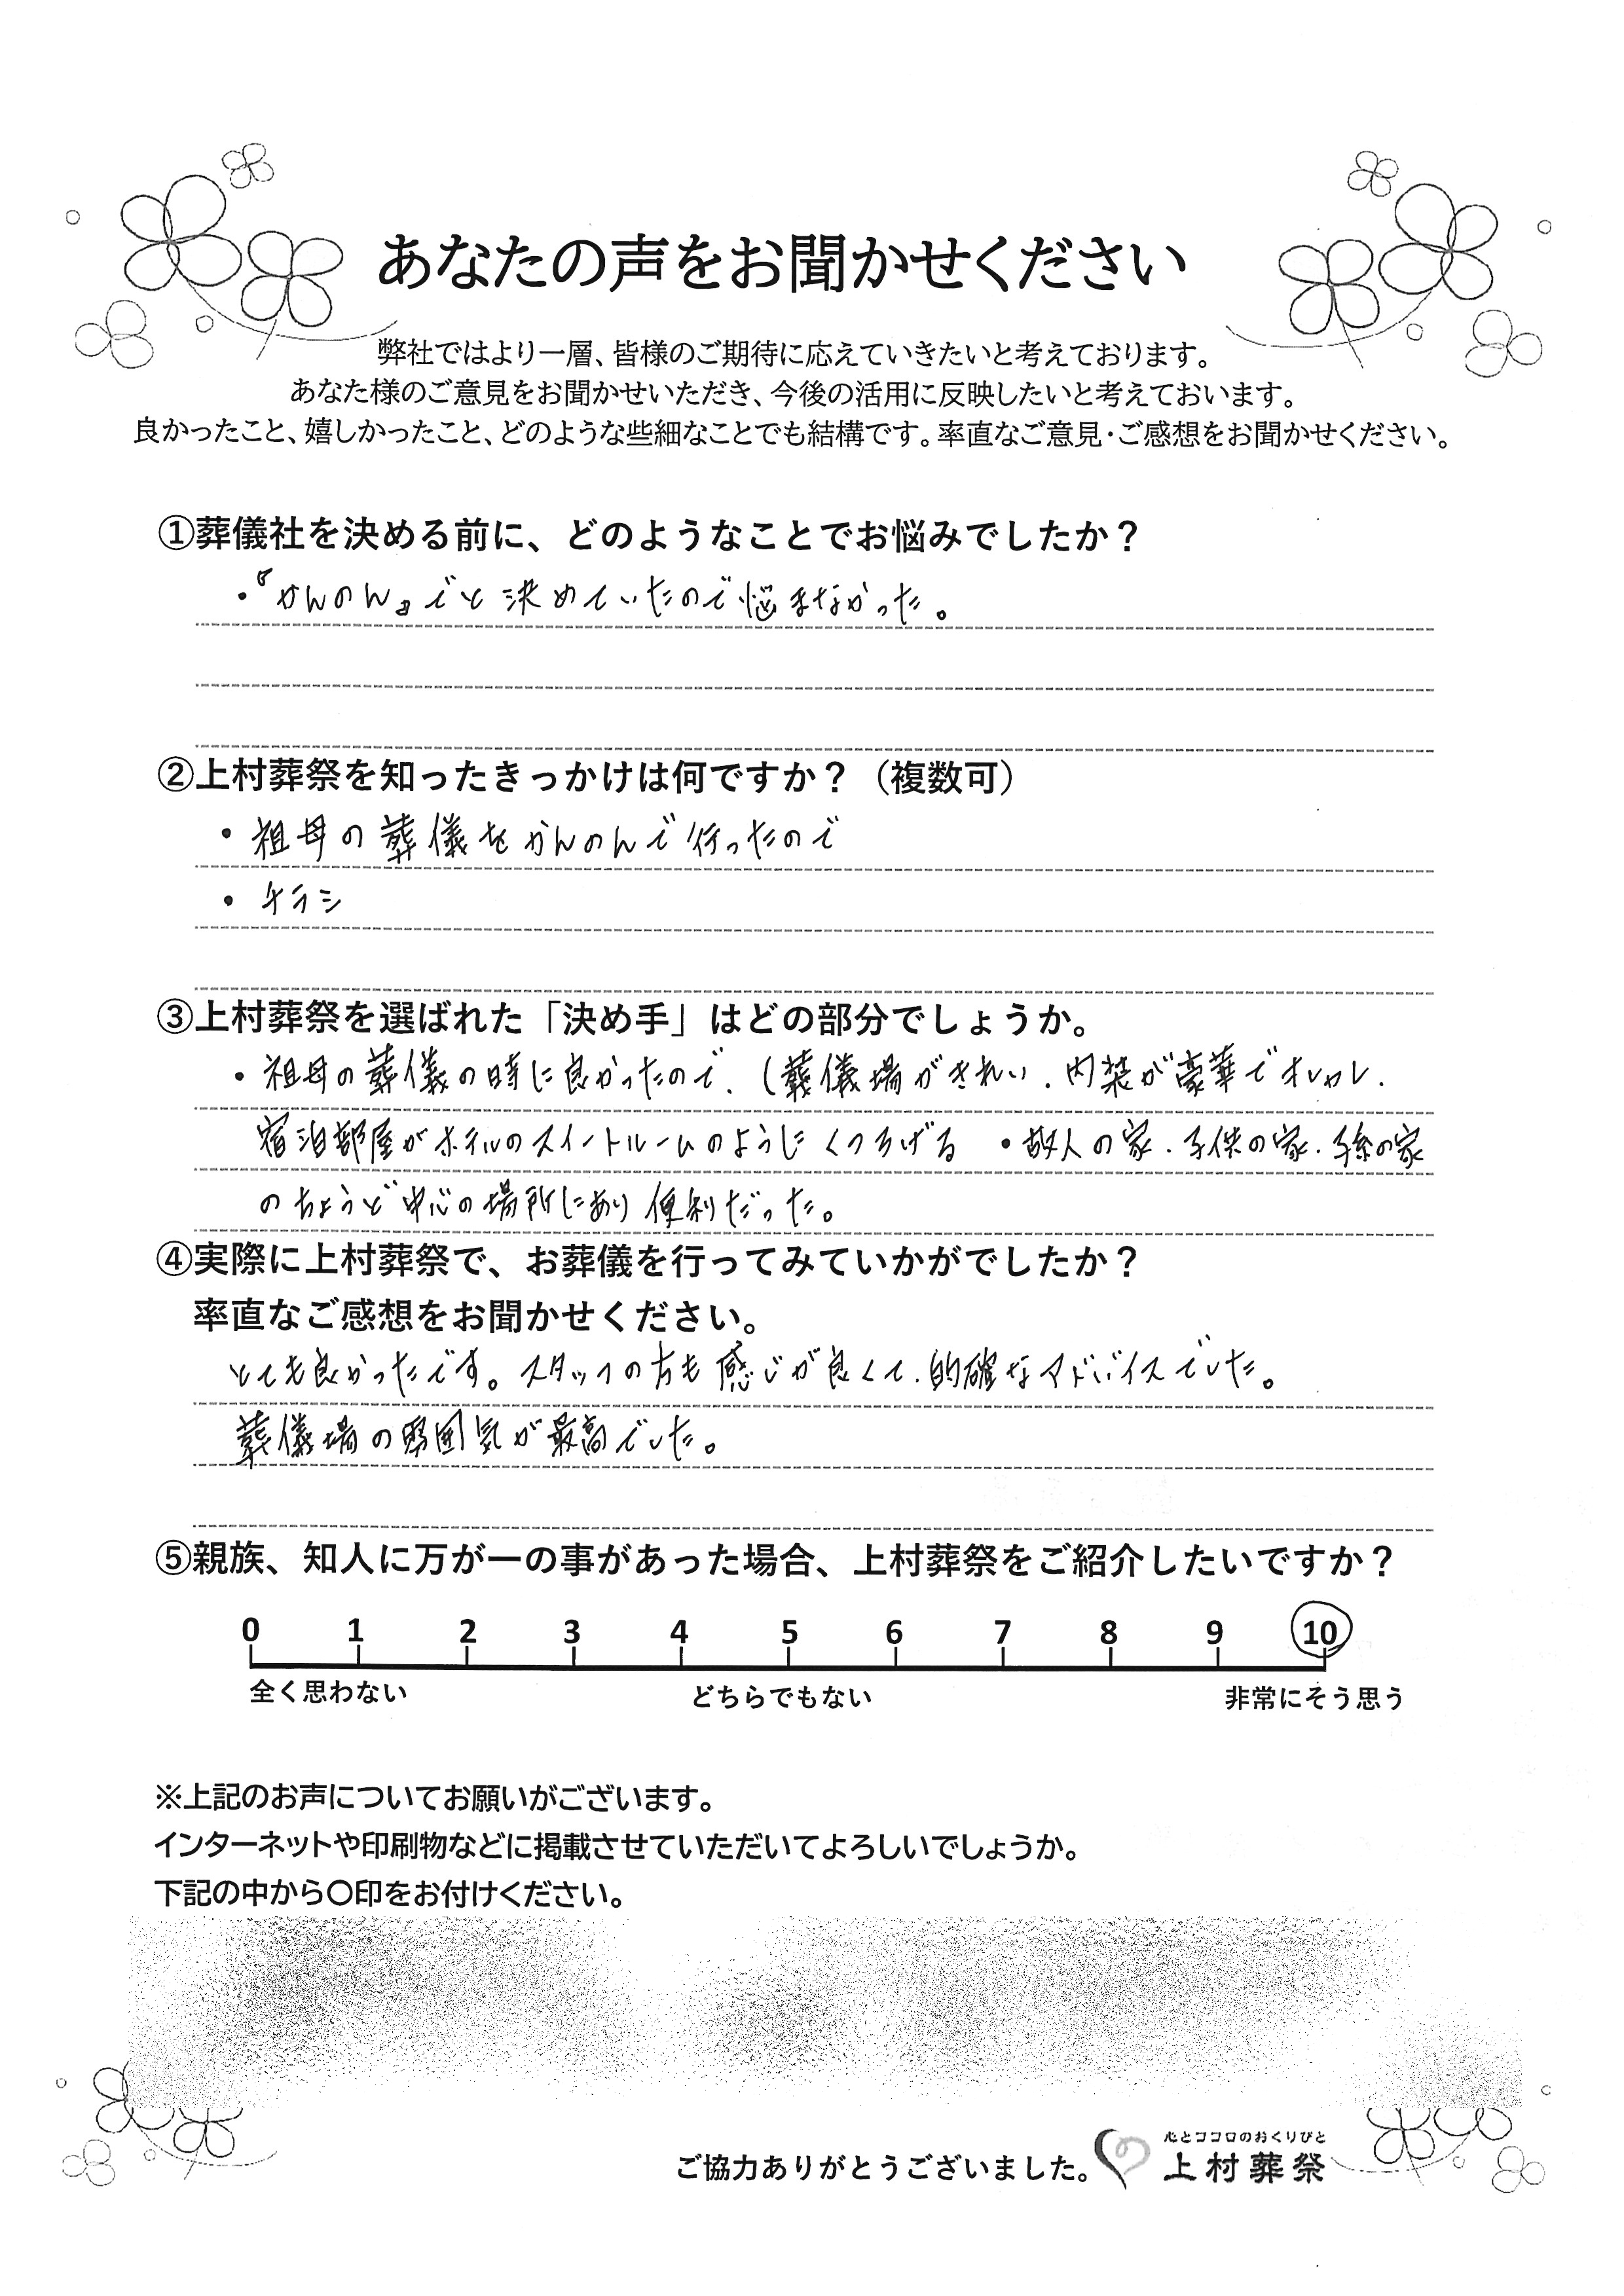 あなたの声をお聞かせください
弊社ではより一層、皆様のご期待に応えていきたいと考えております。
あなた様のご意見をお聞かせいただき、今後の活用に反映したいと考えておいます。
良かったこと、嬉しかったこと、どのような些細なことでも結構です。率直なご意見・ご感想をお聞かせください。
①葬儀社を決める前に、どのようなことでお悩みでしたか？
・『かんのん』でと決めていたので悩まなかった。
②上村葬祭を知ったきっかけは何ですか？（複数可）
・祖母の葬儀をかんのんで行ったので
・チラシ
③上村葬祭を選ばれた「決め手」はどの部分でしょうか。
・祖母の葬儀の時に良かったので、（葬儀場がきれい、内装が豪華でオシャレ、
宿泊部屋がホテルのスイートルームのようにくつろげる ・故人の家、子供の家、孫の家
のちょうど中心の場所にあり便利だった。
④実際に上村葬祭で、お葬儀を行ってみていかがでしたか？
率直なご感想をお聞かせください。
とても良かったです。スタッフの方も感じが良くて、的確なアドバイスでした。
葬儀場の雰囲気が最高でした。
⑤親族、知人に万が一の事があった場合、上村葬祭をご紹介したいですか？
0 1 2 3 4 5 6 7 8 9 10
全く思わない どちらでもない 非常にそう思う
※上記のお声についてお願いがございます。
インターネットや印刷物などに掲載させていただいてよろしいでしょうか。
下記の中から〇印をお付けください。
心とココロのおくりびと
ご協力ありがとうございました。 上村葬祭